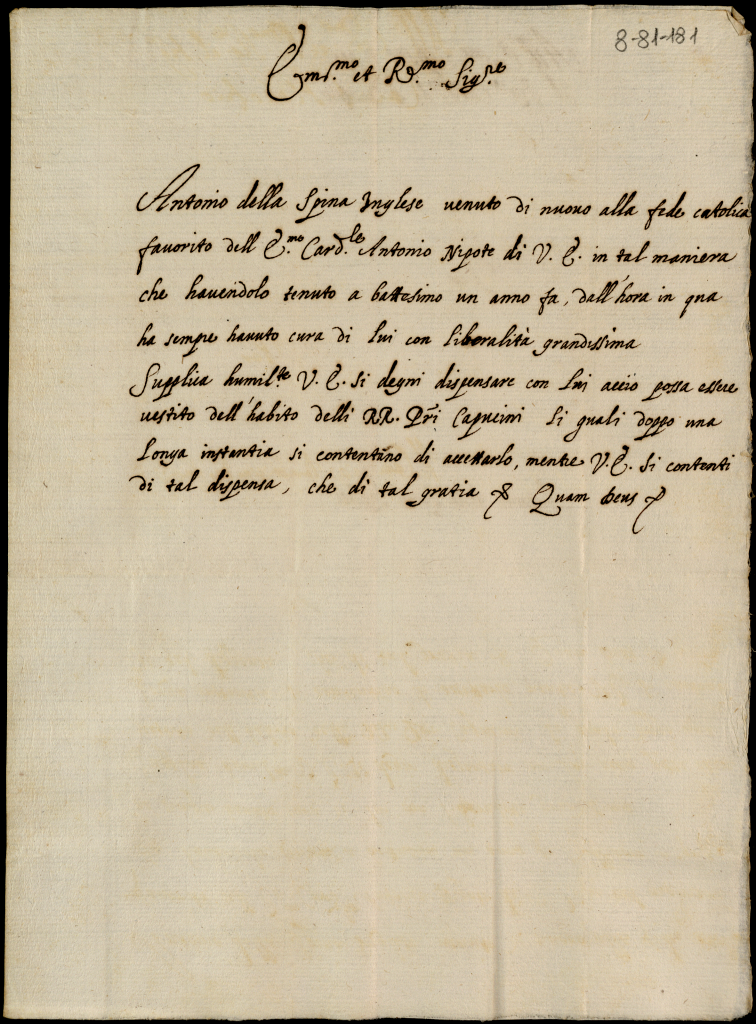 8-81-181
Em.mo et R.mo Sig.re
Antonio della Spina Inglese venuto di nuovo alla fede catolica
favorito dell E.mo Card.le Antonio Nipote di V. E. in tal maniera
che havendolo tenuto a battesimo un anno fa, dall'hora in qua
ha sempre havuto cura di lui con liberalità grandissima
Supplica humil.te V. E. si degni dispensare con lui acciò possa essere
vestito dell'habito delli RR. Pri Capucini li quali doppo una
longa instantia si contentano di accettarlo, mentre V. E. si contenti
di tal dispensa, che di tal gratia Quam Deus